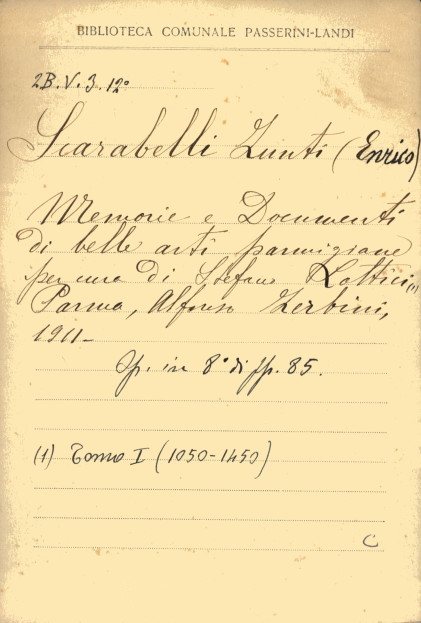 BIBLIOTECA COMUNALE PASSERINI-LANDI
2B.V.3.12°
Scarabelli Zunti (Enrico)
Memorie e Documenti
di belle arti parmigiane
per cura di Stefano Lottici (1)
Parma, Alfonso Zerbini,
1911-
Op. in 8° di pp. 85.
(1) Tomo I (1050-1450)
C